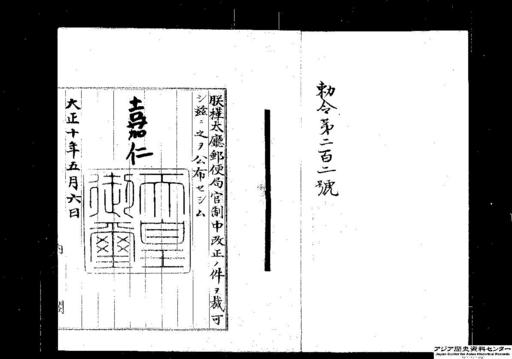 勅令第二百二號
朕樺太廳郵便局官制中改正ノ件ヲ裁可
シ茲ニ之ヲ公布セシム
嘉仁
天皇御璽
大正十年五月六日
内閣
アジア歴史資料センター
Japan Center for Asian Historical Records